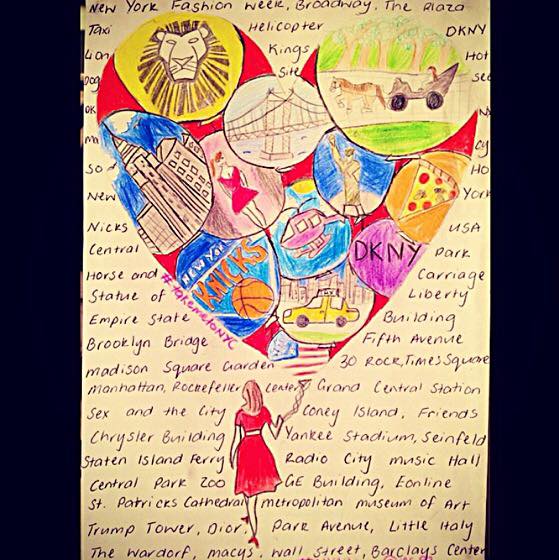 New York Fashion Week, Broadway, The Plaza
Taxi Helicopter DKNY
Lion Kings Hot
Dog Site see
So
New York
Nicks USA
Central Park
Horse and Carriage
Statue of Liberty
Empire State Building
Brooklyn Bridge Fifth Avenue
madison Square Garden 30 ROCK, Times Square
manhattan, Rockefeller Center, Grand Central Station
Sex and the City Coney Island, Friends
Chrysler Building Yankee Stadium, Seinfeld
Staten Island Ferry Radio City music Hall
Central Park Zoo GE Building, Eonline
St. Patricks Cathedral metropolitan museum of Art
Trump Tower, Dior, Park Avenue, Little Italy
The Wardorf, macys, wall street, Barclays Center
NEW YORK
KNICKS
DKNY
#takemetoNYC